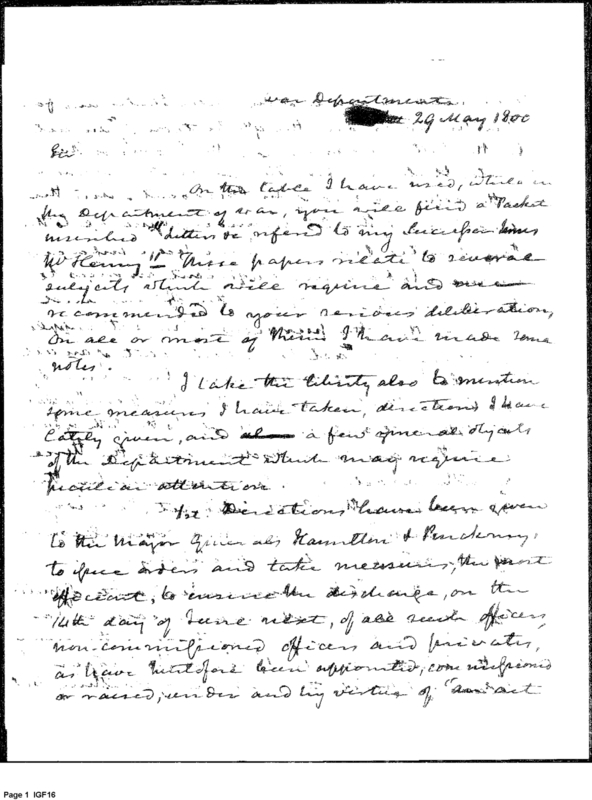 War Department
29 May 1800
Sir
On the table I have used, while in
the Department of War, you will find a Packet
inscribed "Letters &c refered to my Successor
Mc Henry" These papers relate to several
subjects which will require and
recommended to your serious deliberation,
On all or most of them I have made some
notes.
I take the liberty also to mention
some measures I have taken, directions I have
lately given, and a few general objects
of the Department which may require
peculiar attention.
1st Directions have been given
to the Major Generals Hamilton & Pinckney,
to issue orders and take measures, the most
efficient, to ensure the discharge, on the
14th day of June next, of all such officers
non-commissioned officers and privates,
as have heretofore been appointed, commissioned
or raised, under and by virtue of "an act
Page 1 IGF16